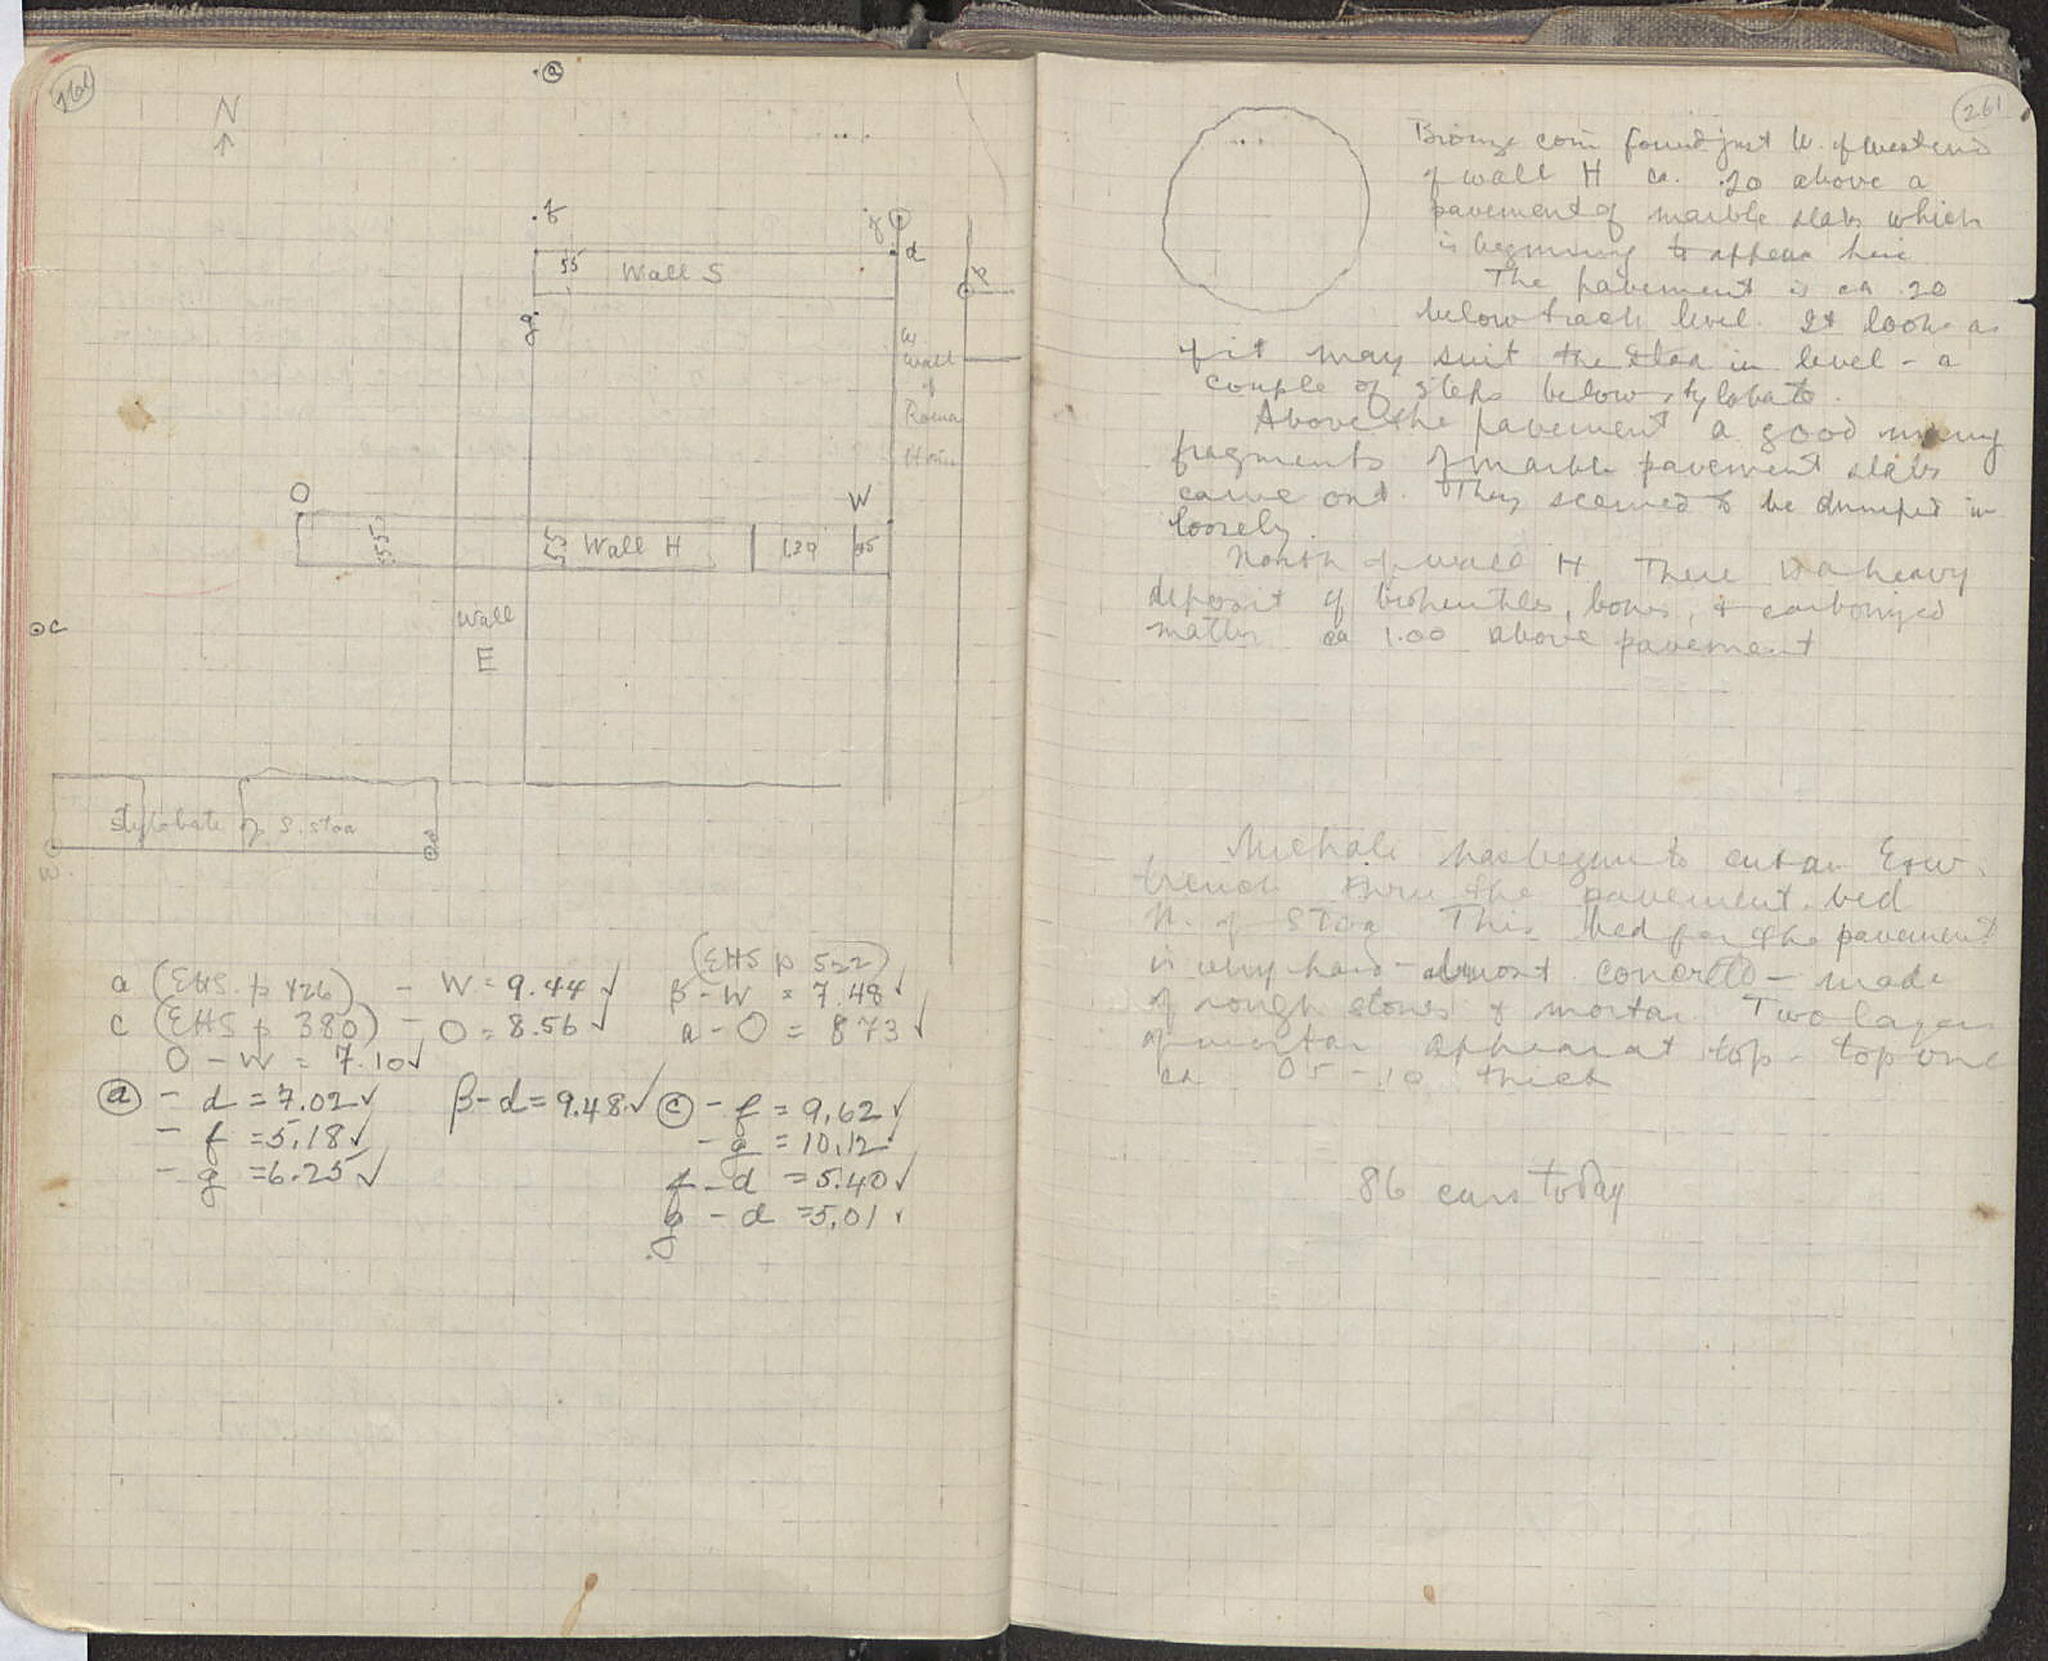 N
a
f
d
55 Wall S
g
W
Wall
of
Roman
House
O
W
.55
.55 Wall H 1.20 .45
c
Wall
E
stylobate of S. stoa
d
W.
a (EHS. p 426) - W = 9.44 ✓
c (EHS p 380) - O = 8.56 ✓
O - W = 7.10 ✓
(EHS p 522)
β - W = 7.48 ✓
a - O = 8.73 ✓
a - d = 7.02 ✓ β - d = 9.48 ✓ c - f = 9.62 ✓
- f = 5.18 ✓ - g = 10.12
- g = 6.25 ✓ f - d = 5.40 ✓
g - d = 5.01 ✓
261
Bronze coin found just W. of west end
of wall H ca. .20 above a
pavement of marble slabs which
is beginning to appear here
The pavement is ca .20
below track level. It looks as
if it may suit the Stoa in level - a
couple of steps below stylobate.
Above the pavement a good many
fragments of marble pavement slabs
came out. They seemed to be dumped in
loosely.
North of wall H There is a heavy
deposit of broken tiles, bones, & carbonized
matter ca 1.00 above pavement
Michali has begun to cut an E & W.
trench thru the pavement bed
N. of Stoa This bed for the pavement
is very hard - almost concrete - made
of rough stones & mortar. Two layers
of mortar appear at top - top one
ca .05 - .10 thick
86 cars today